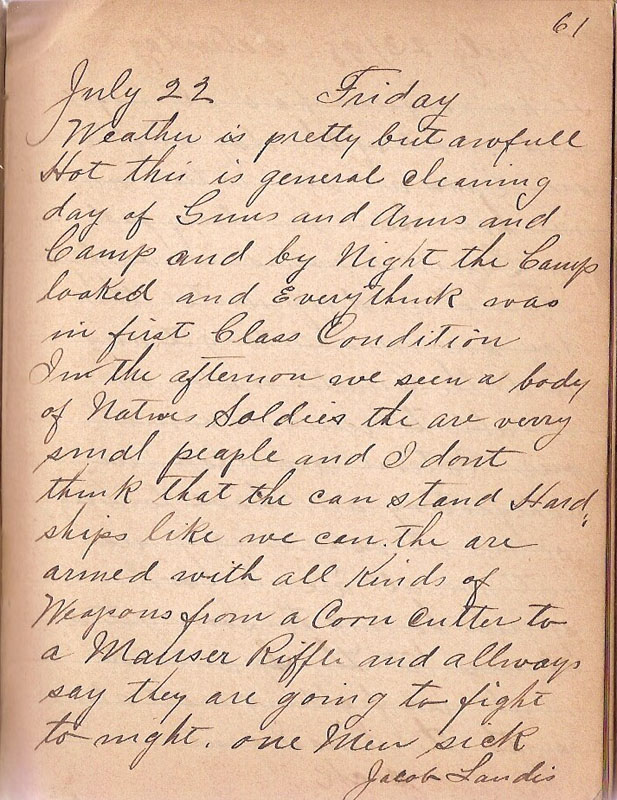 61
July 22 Friday
Weather is pretty but awfull
Hot this is general cleaning
day of Guns and Arms and
Camp and by Night the Camp
looked and Everythink was
in first Class Condition
In the afternoon we seen a body
of Natives Soldies the are verry
small people and I dont
think that the can stand Hard,,
ships like we can. the are
armed with all Kinds of
Weapons from a Corn Cutter to
a Mauser Riffle and allways
say they are going to fight
to night. one Men sick
Jacob Landis